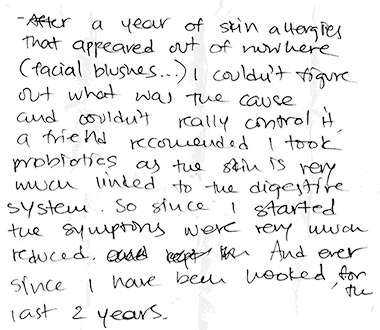 - After a year of skin allergies
that appeared out of nowhere
(facial blushes...) I couldn't figure
out what was the cause
and couldn't really control it,
a friend recomended I took
probiotics as the skin is very
much linked to the digestive
system. So since I started
the symptoms were very much
reduced. And ever
since I have been hooked for
the
last 2 years.